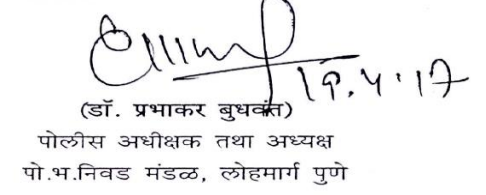 १९.४.१७
(डॉ. प्रभाकर बुधवंत)
पोलीस अधीक्षक तथा अध्यक्ष
पो.भ.निवड मंडळ, लोहमार्ग पुणे